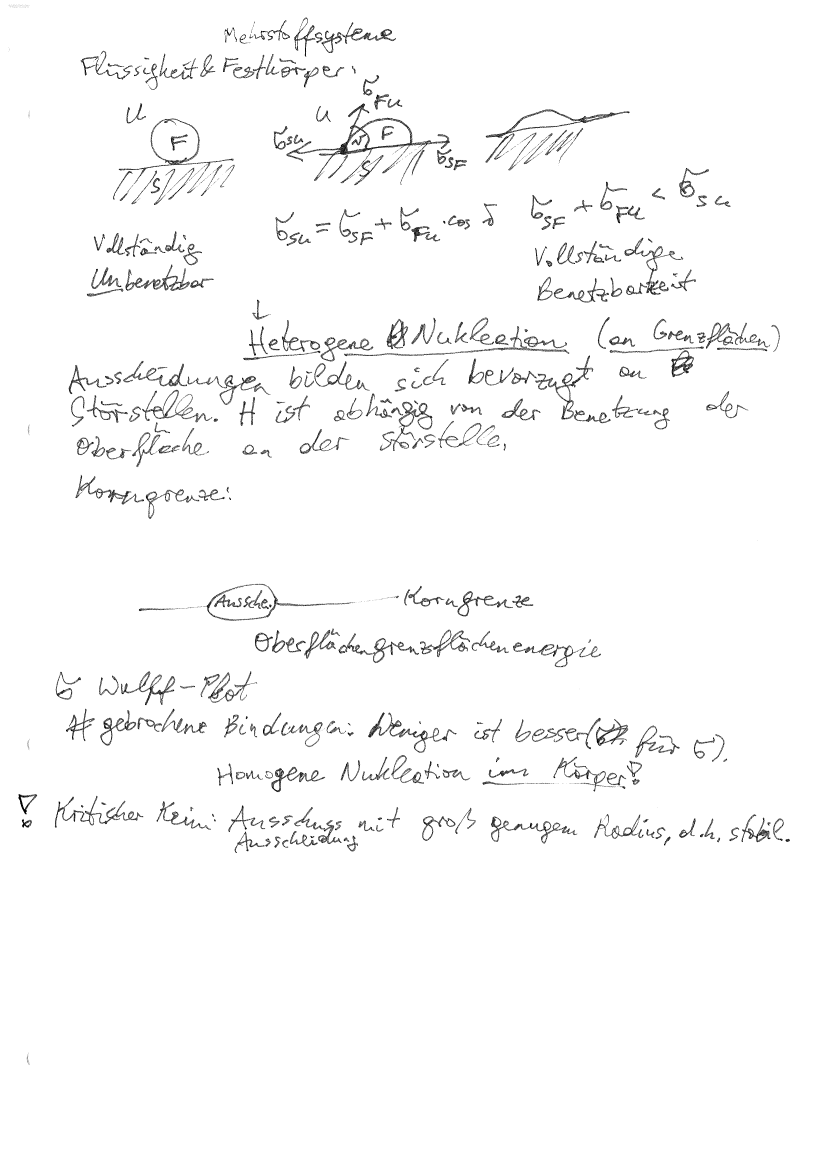 Mehrstoffsysteme
Flüssigkeit & Festkörper:
U F S
U F S σSU σFU σSF
σSU = σSF + σFU · cos δ
σSF + σFU < σSU
Vollständig
Unbenetzbar
Vollständige
Benetzbarkeit
↓
Heterogene Nukleation (an Grenzflächen)
Ausscheidungen bilden sich bevorzugt an
Störstellen. H ist abhängig von der Benetzung der
Oberfläche an der Störstelle.
Korngrenze:
Aussche. Korngrenze
Oberflächengrenzflächenenergie
σ Wulff-Plot
# gebrochene Bindungen: Weniger ist besser (für σ).
Homogene Nukleation im Körper!
! Kritischer Keim: Ausschuss mit groß genugem Radius, d.h. stabil.
Ausscheidung